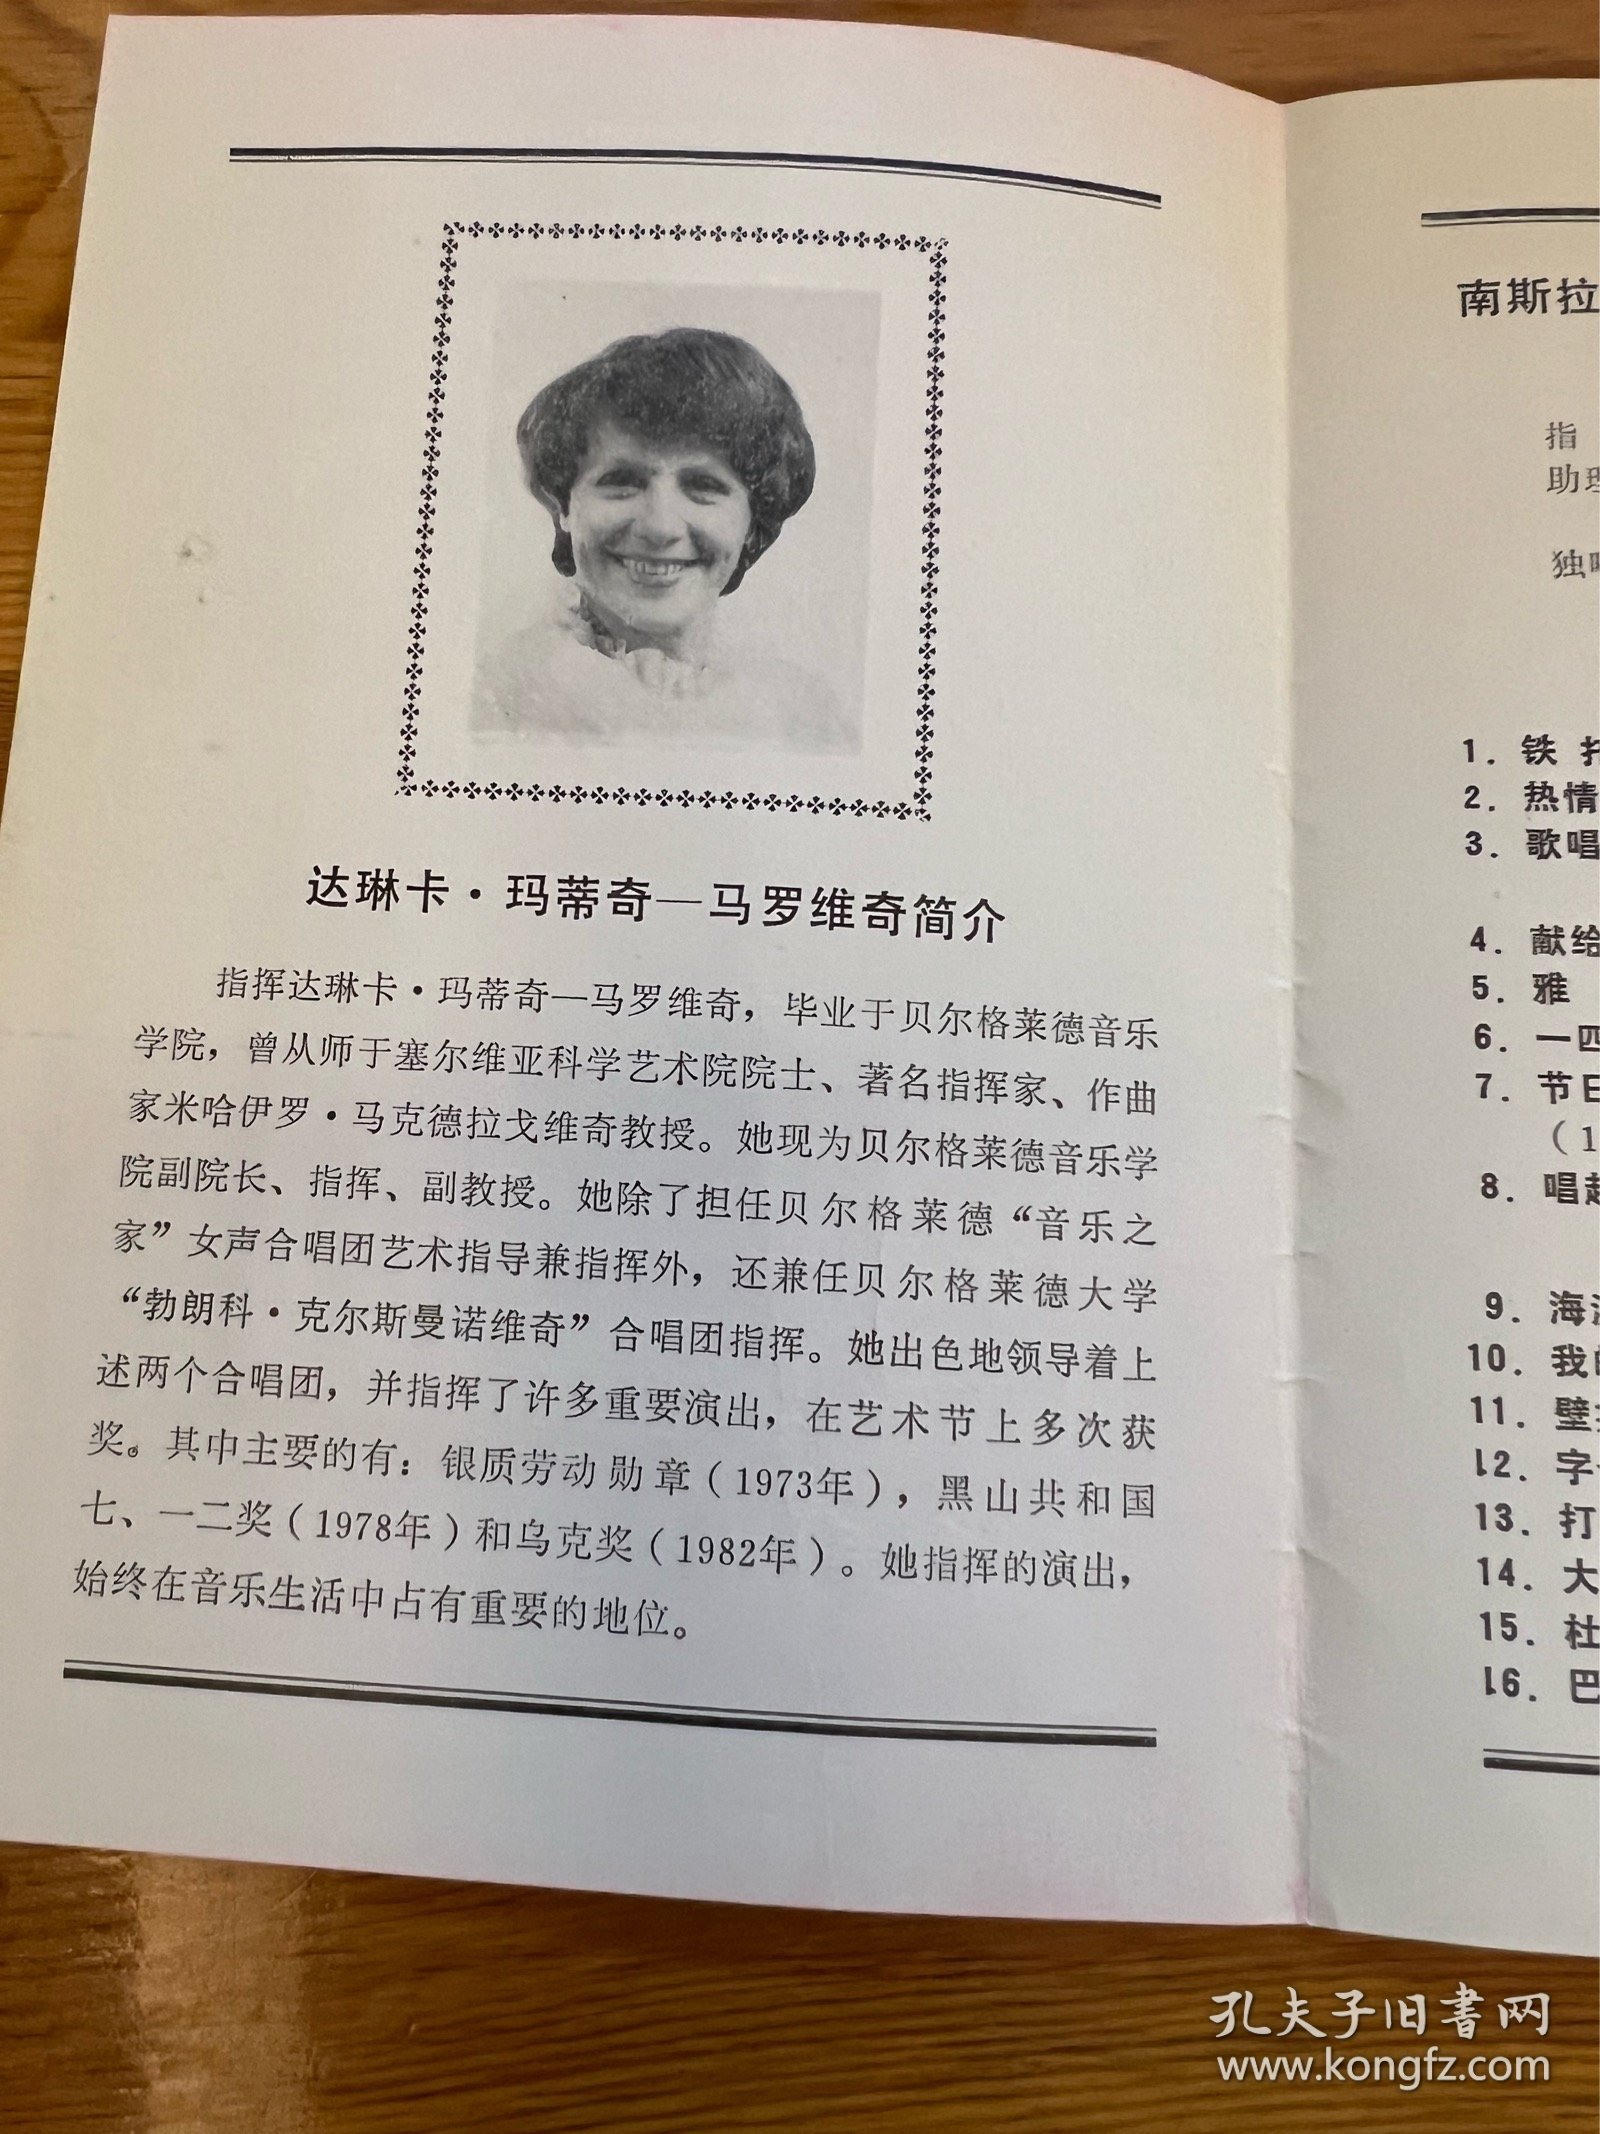 达琳卡·玛蒂奇—马罗维奇简介
指挥达琳卡·玛蒂奇—马罗维奇，毕业于贝尔格莱德音乐
学院，曾从师于塞尔维亚科学艺术院院士、著名指挥家、作曲
家米哈伊罗·马克德拉戈维奇教授。她现为贝尔格莱德音乐学
院副院长、指挥、副教授。她除了担任贝尔格莱德“音乐之
家”女声合唱团艺术指导兼指挥外，还兼任贝尔格莱德大学
“勃朗科·克尔斯曼诺维奇”合唱团指挥。她出色地领导着上
述两个合唱团，并指挥了许多重要演出，在艺术节上多次获
奖。其中主要的有：银质劳动勋章（1973年），黑山共和国
七、一二奖（1978年）和乌克奖（1982年）。她指挥的演出，
始终在音乐生活中占有重要的地位。
南斯拉
指
助理
独唱
1．铁托
2．热情
3．歌唱
4．献给
5．雅
6．一四
7．节日
（1
8．唱起
9．海
10．我的
11．壁
12．字
13．打
14．大
15．杜
16．巴
孔夫子旧书网
www.kongfz.com